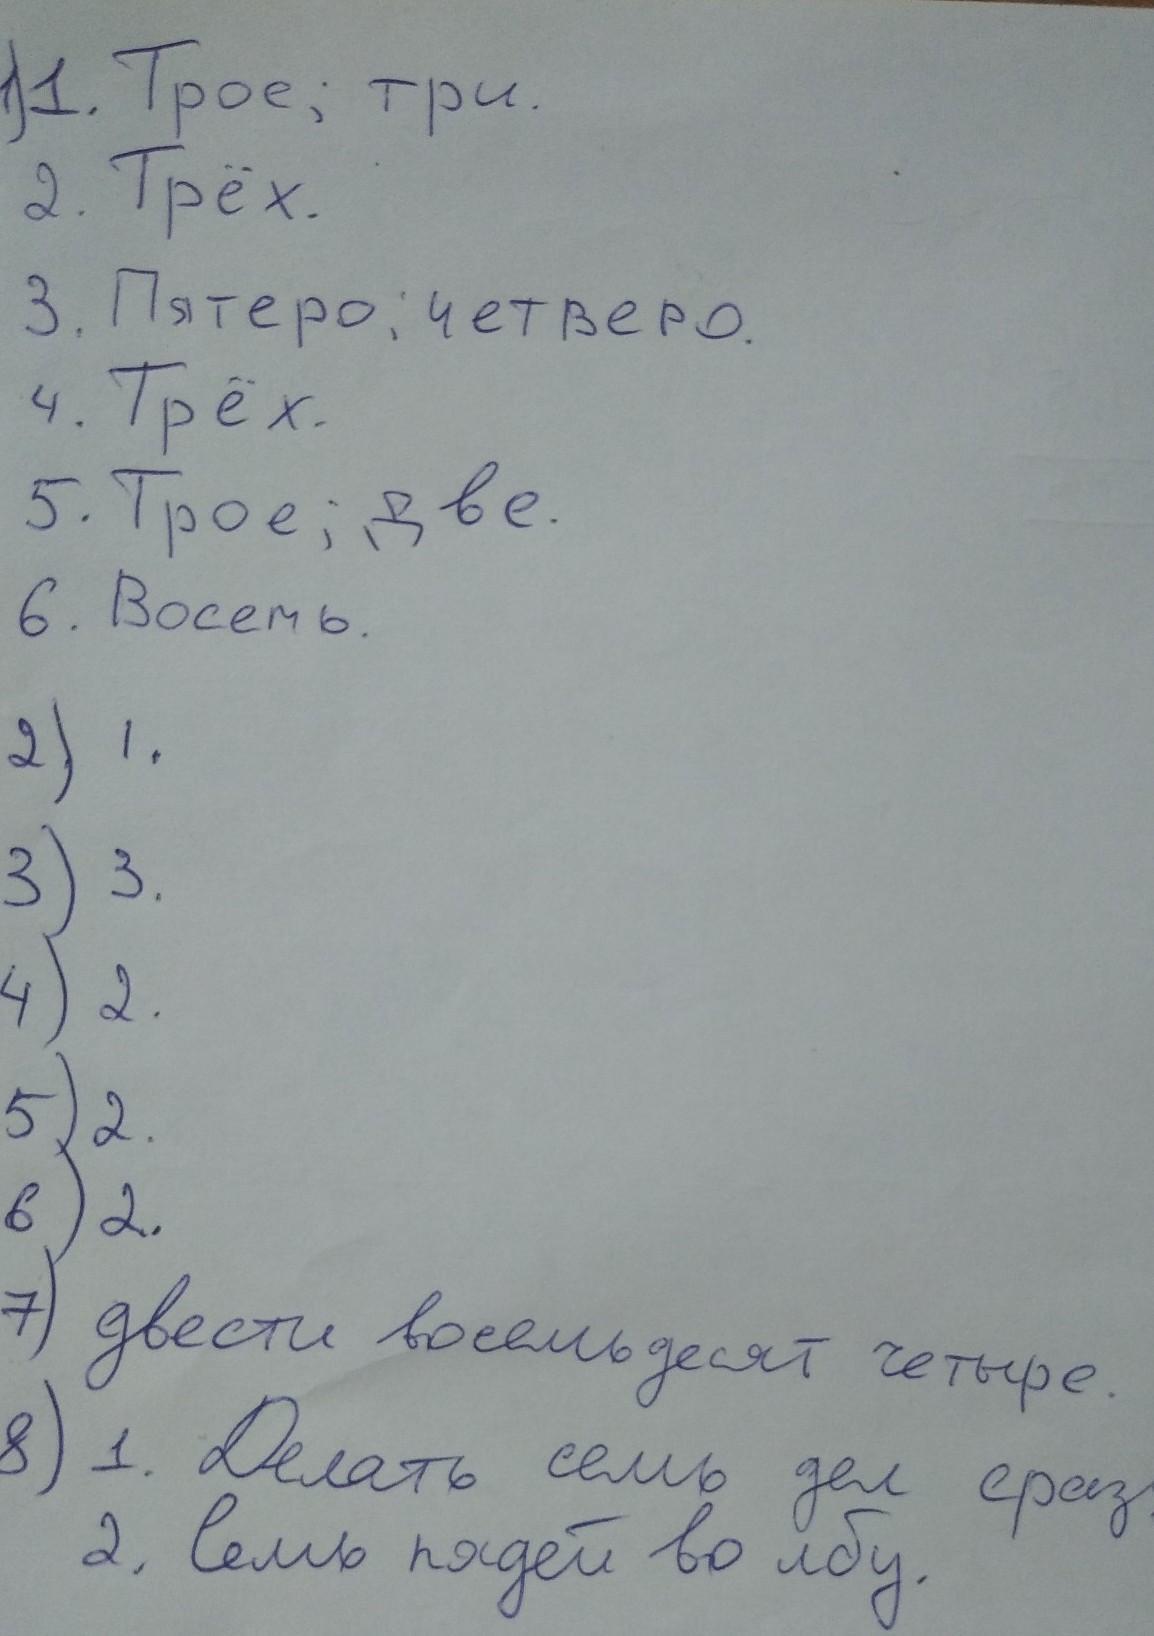 1) 1. Трое; три.
2. Трёх.
3. Пятеро; четверо.
4. Трёх.
5. Трое; две.
6. Восемь.
2) 1.
3) 3.
4) 2.
5) 2.
6) 2.
7) двести восемьдесят четыре.
8) 1. Делать семь дел сраз
2. Семь пядей во лбу.